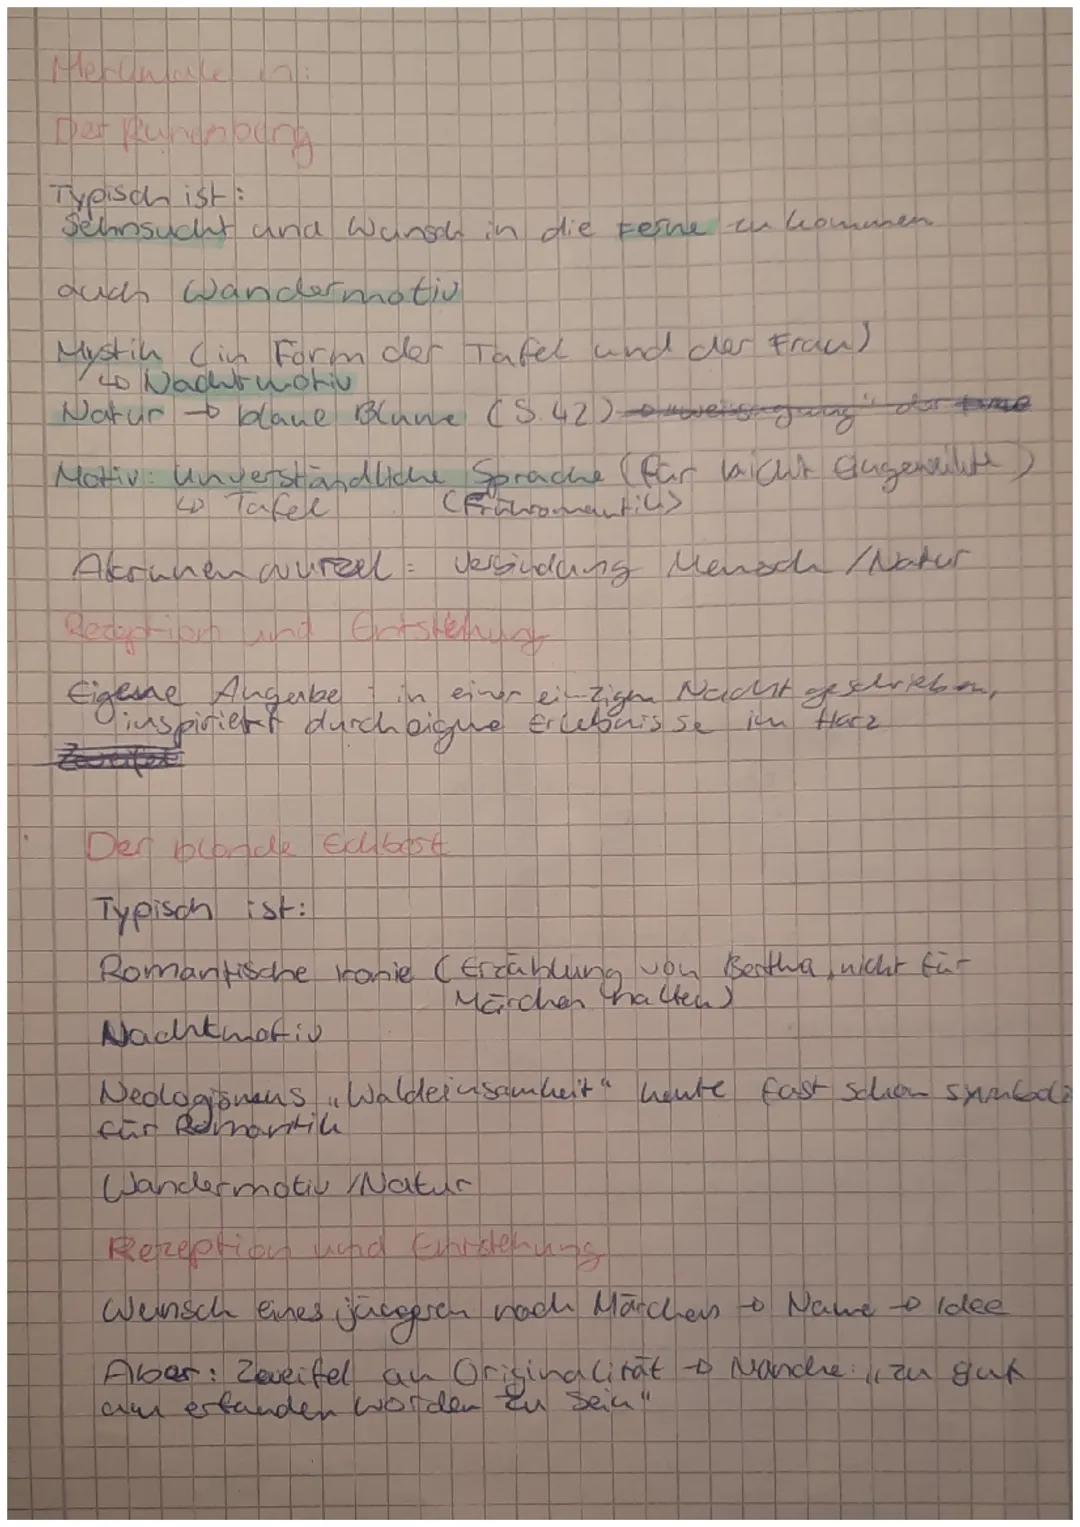 Merkmale in:
Der Runenberg
Typisch ist:
Sehnsucht und Wunsch in die Ferne zu kommen
auch Wandermotiv
Mystik (in Form der Tafel und der Frau)
↳ Nachtmotiv
Natur → blaue Blume (S. 42) → "weissagung" der
Motiv: Unverständliche Sprache (für nicht Eingeweihte)
↳ Tafel (Frühromantik)
Alrunenwurzel: Verbindung Mensch / Natur
Rezeption und Entstehung
Eigene Angabe: in einer einzigen Nacht geschrieben,
inspiriert durch eigene Erlebnisse im Harz
Zweifel
Der blonde Eckbert
Typisch ist:
Romantische Ironie (Erzählung von Bertha nicht für
Märchen halten)
Nachtmotiv
Neologismus "Waldeinsamkeit" heute fast schon symbol
für Romantik
Wandermotiv / Natur
Rezeption und Entstehung
Wunsch eines jüngeren nach Märchen → Name → Idee
Aber: Zweifel an Originalität → Manche: "zu gut
um erfunden worden zu sein"